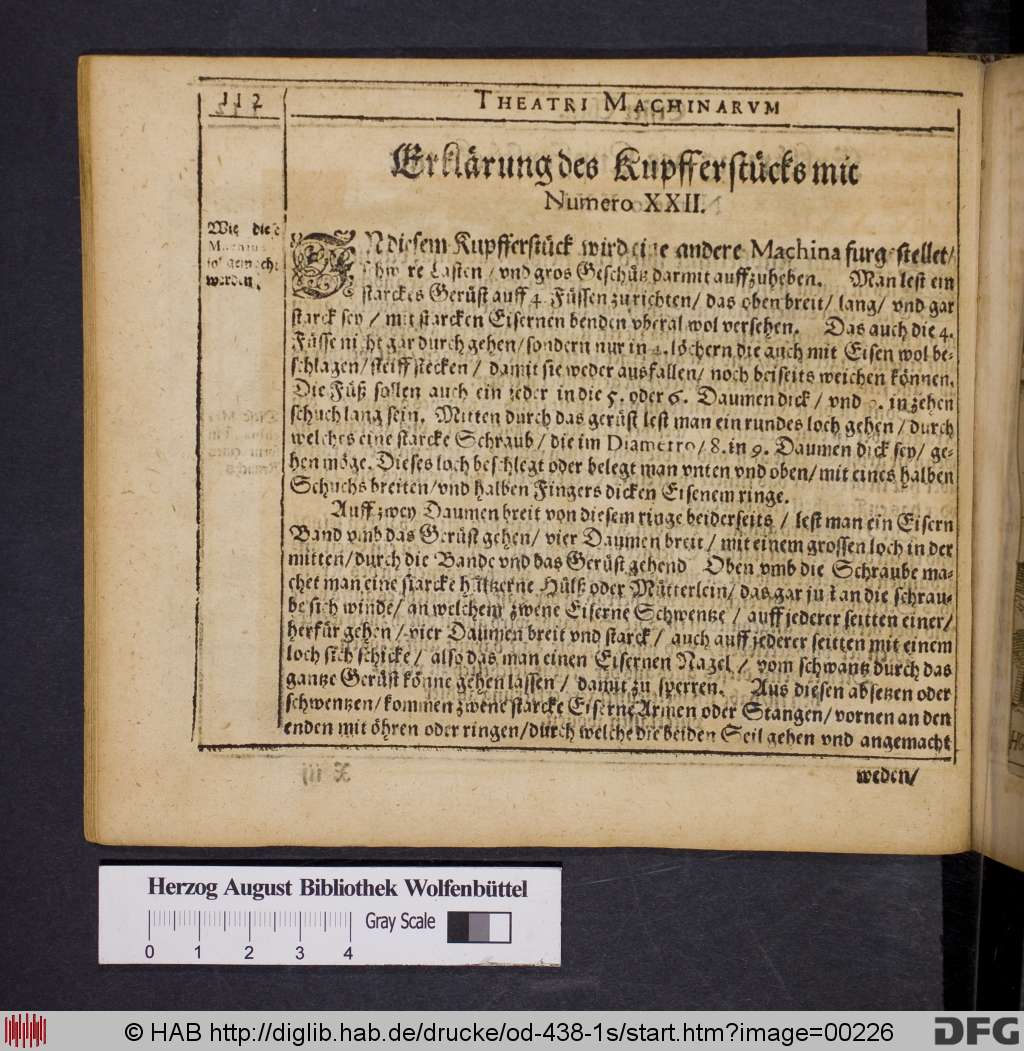 112
THEATRI MACHINARVM
Erklärung des Kupfferstücks mit
Numero XXII.
Wie diese
Machina
sol gemacht
werden.
IN diesem Kupfferstück wird eine andere Machina furgestellet/
schwere Lasten / vnd gros Geschütz darmit auffzuheben. Man lest ein
starckes Gerüst auff 4. Füssen zurichten/ das oben breit/ lang/ vnd gar
starck sey / mit starcken Eisernen benden vberal wol versehen. Das auch die 4.
Füsse nicht gar durch gehen/ sondern nur in 4. löchern die auch mit Eisen wol be-
schlagen/ steiff stecken / damit sie weder ausfallen/ noch beiseits weichen können.
Die Füß sollen auch ein jeder in die 5. oder 6. Daumen dick / vnd in zehen
schuch lang sein. Mitten durch das gerüst lest man ein rundes loch gehen / durch
welches eine starcke Schraub / die im Diametro/ 8. in 9. Daumen dick sey/ ge-
hen möge. Dieses loch beschlegt oder belegt man vnten vnd oben/ mit eines halben
Schuchs breiten/ vnd halben Fingers dicken Eisenem ringe.
Auff zwey Daumen breit von diesem ringe beiderseits / lest man ein Eisern
Band vmb das Gerüst gehen/ vier Daumen breit / mit einem grossen loch in der
mitten/ durch die Bande vnd das Gerüst gehend Oben vmb die Schraube ma-
chet man eine starcke hültzerne Hülß oder Mütterlein/ das gar just an die schrau-
be sich winde/ an welchem zwene Eiserne Schwentze / auff jederer seitten einer/
herfür gehen /vier Daumen breit vnd starck / auch auff jederer seitten mit einem
loch sich schicke/ also das man einen Eisernen Nagel / vom schwantz durch das
gantze Gerüst könne gehen lassen / damit zu sperren. Aus diesen absetzen oder
schwentzen/ kommen zwene starcke Eiserne Armen oder Stangen/ vornen an den
enden mit öhren oder ringen/ durch welche die beiden Seil gehen vnd angemacht
weden/
Herzog August Bibliothek Wolfenbüttel
Gray Scale
0 1 2 3 4
© HAB http://diglib.hab.de/drucke/od-438-1s/start.htm?image=00226
DFG